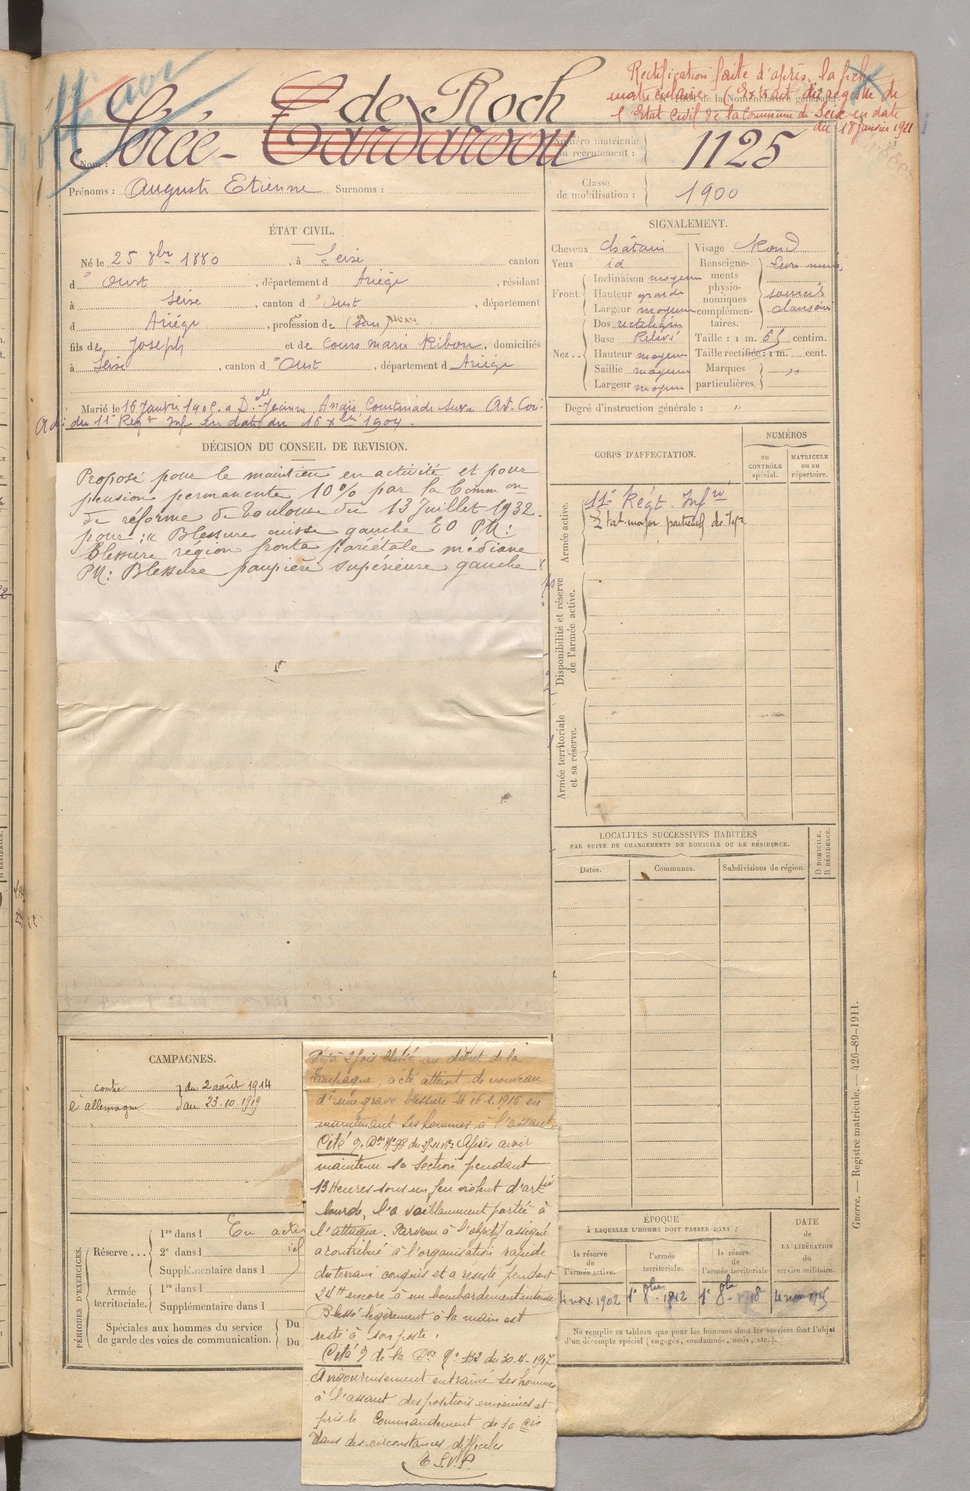 Rectification faite d'après la fiche
matriculaire. Extrait du registre de
l'Etat Civil de la Commune de Seix en date
du 18 janvier 1921
de Roch
Sérée-
Nom :
Numéro matricule
du recrutement :
1125
Prénoms : Auguste Etienne Surnoms :
Classe
de mobilisation :
1900
ÉTAT CIVIL.
Né le 25 8bre 1880, à Seix canton
d'Oust, département d Ariège, résidant
à Seix, canton d'Oust, département
d Ariège, profession de
fils de Joseph et de Cours Marie Ribou. domiciliés
à Seix, canton d'Oust, département d Ariège
Marié le 15 Janvier 1905. a Dlle Jeanne Anaïs Courtinade
du 11e Regt Inf en date du 16 Xbre 1904.
SIGNALEMENT.
Cheveux châtain
Yeux id
Front
Inclinaison moyenne
Hauteur grande
Largeur moyenne
Nez
Dos rectiligne
Base Relevé
Hauteur moyen
Saillie moyenne
Largeur moyen
Visage Rond
Renseignements
physionomiques
complémentaires.
sourcils
Taille : 1 m. 65 centim.
Taille rectifiée : 1 m. cent.
Marques
particulières
Degré d'instruction générale : "
DÉCISION DU CONSEIL DE REVISION.
Proposé pour le maintien en activité et pour
pension permanente 10% par la Common
de réforme de Toulouse du 13 Juillet 1932.
pour : « Blessure cuisse gauche EO PM:
Blessure région fronto pariétale médiane
PM: Blessure paupière supérieure gauche
CORPS D'AFFECTATION.
NUMÉROS
AU CONTRÔLE spécial.
MATRICULE ou au répertoire.
Armée active.
11e Régt. Infie
Etat-major particul de Infie.
Disponibilité et réserve
de l'armée active.
Armée territoriale
et sa réserve.
LOCALITÉS SUCCESSIVES HABITÉES
PAR SUITE DE CHANGEMENTS DE DOMICILE OU DE RÉSIDENCE.
Dates.
Communes.
Subdivisions de région.
D DOMICILE.
R RÉSIDENCE.
CAMPAGNES.
contre du 2 août 1914
l'allemagne au 23.10.1919
Déjà 2 fois blessé au début de la
campagne, a été atteint de nouveau
d'une grave blessure le 16.2.1915 en
maintenant ses hommes à l'assaut
Cité Après avoir
maintenu sa section pendant
13 Heures sous un feu violent d'artie
lourde, l'a vaillamment portée à
l'attaque. Parvenu à l'objectif assigné
a contribué à l'organisation rapide
du terrain conquis et a résisté pendant
24h encore à un bombardement intense
Blessé légèrement à la main est
resté à son poste.
Cité du 30.4.1917
A vigoureusement entrainé ses hommes
à l'assaut des positions ennemies et
pris le Commandement de sa Cie
dans des circonstances difficiles
T.S.V.P.
PÉRIODES D'EXERCICES.
Réserve...
1re dans l En activ
2e dans l id
Supplémentaire dans l
Armée
territoriale.
1re dans l
Supplémentaire dans l
Spéciales aux hommes du service
de garde des voies de communication.
Du
Du
ÉPOQUE
À LAQUELLE L'HOMME DOIT PASSER DANS :
la réserve
de l'armée active.
l'armée
territoriale.
la réserve
de l'armée territoriale
DATE
DE
LA LIBÉRATION
DU
service militaire.
4 nov. 1902
1er 8bre 1912
1er 8bre 1918
Ne remplir ce tableau que pour les hommes dont les services font l'objet
d'un décompte spécial (engagés, condamnés, omis, etc.).
Guerre. — Registre matricule. — 426-89-1911.